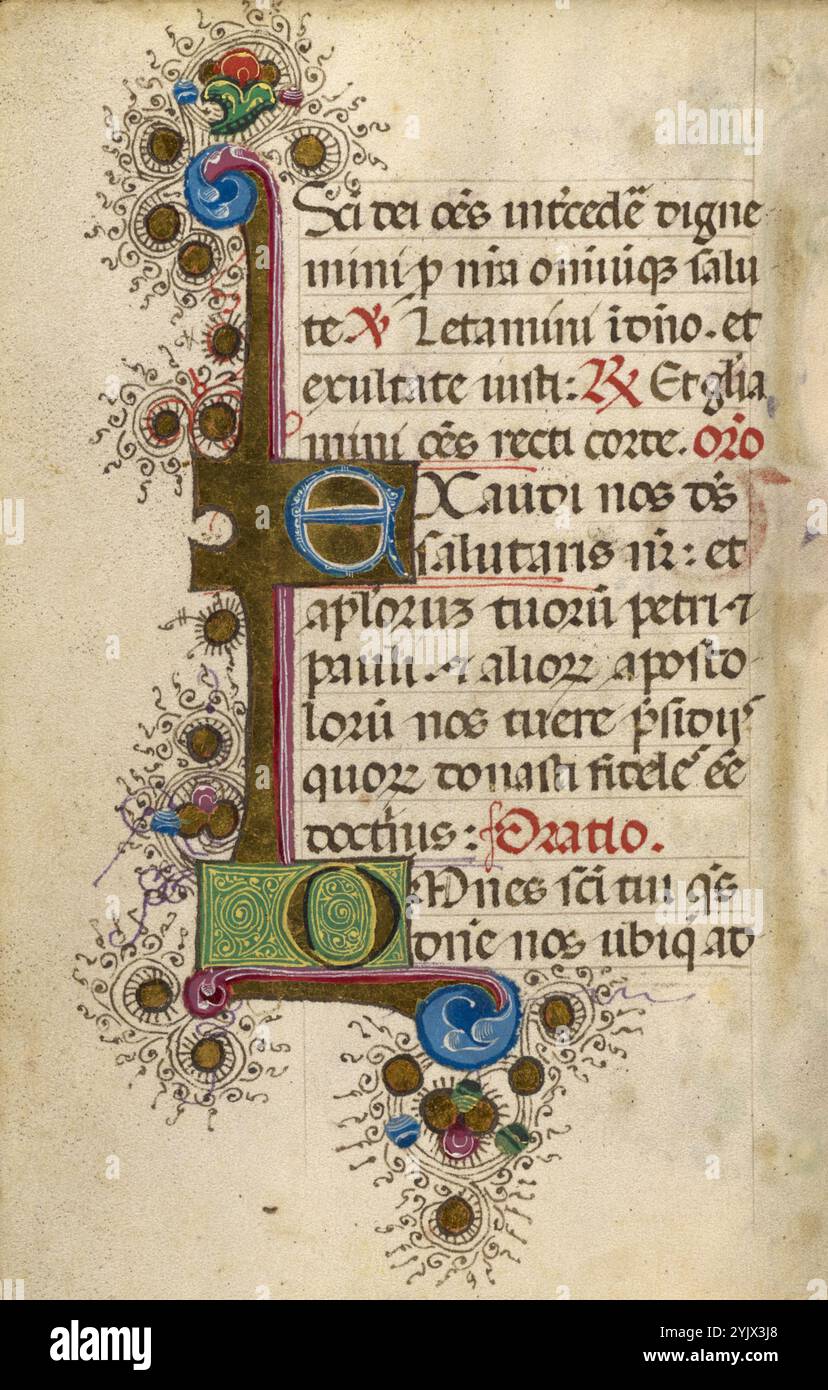 Sc̄i dei oēs int̄cedē digne
mini p̱ nr̄a om̄iūqꝫ salu
te ℣ Letamini i dn̄o. et
exultate iusti: ℟ Et gl̄ia
mini oēs recti corde. Or̄o
EXaudi nos ds̄
salutaris nr̄: et
apl̄oruꝫ tuorū petri ⁊
pauli. ⁊ alioꝝ aposto
lorū nos tuere p̄sidijs
quoꝝ donasti fideles eē
doctius: Oratio.
OMnes sc̄i tui qs̄
dn̄e nos ubiqꝫ ad
alamy
Image ID: 2YJX3J8
www.alamy.com